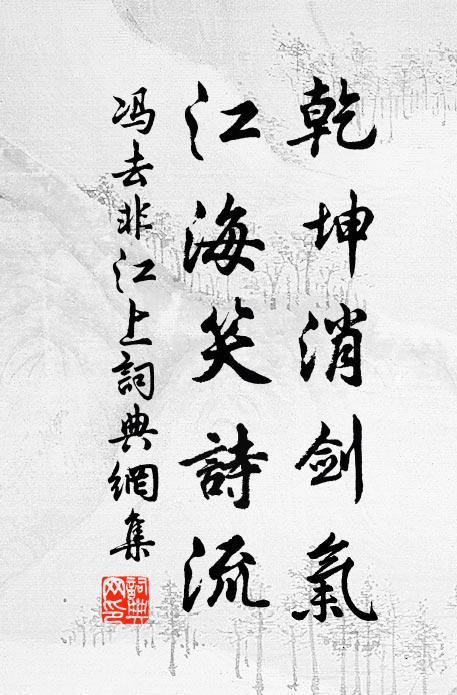 乾坤消剑氣
江海笑詩流
冯去非江上詞典網集
詞典網印